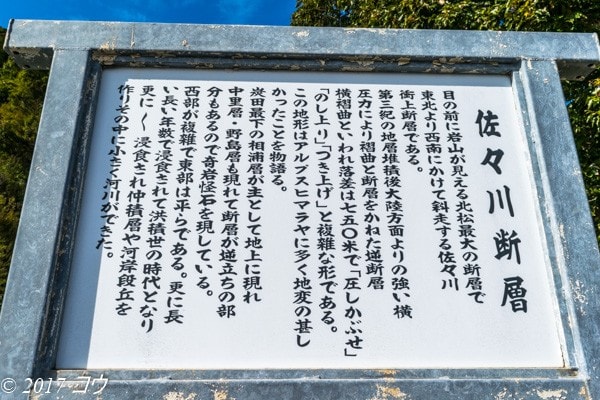 佐々川断層
目の前に岩山が見える北松最大の断層で
東北より西南にかけて斜走する佐々川
衝上断層である。
第三紀の地層堆積後大陸方面よりの強い横
圧力により褶曲と断層をかねた逆断層
横褶曲といわれ落差は七五〇米で「圧しかぶせ」
「のし上り」「つき上げ」と複雑な形である。
この地形はアルプスヒマラヤに多く地変の甚し
かったことを物語る。
炭田最下の相浦層が主として地上に現れ
中里層・野島層も現れて断層が逆立ちの部
分もあるので奇岩怪石を現している。
西部が複雑で東部は平らである。更に長
い長い年数で浸食されて洪積世の時代となり
更に〱浸食され仲積層や河岸段丘を
作りその中に小さく河川ができた。
© 2017 コウ